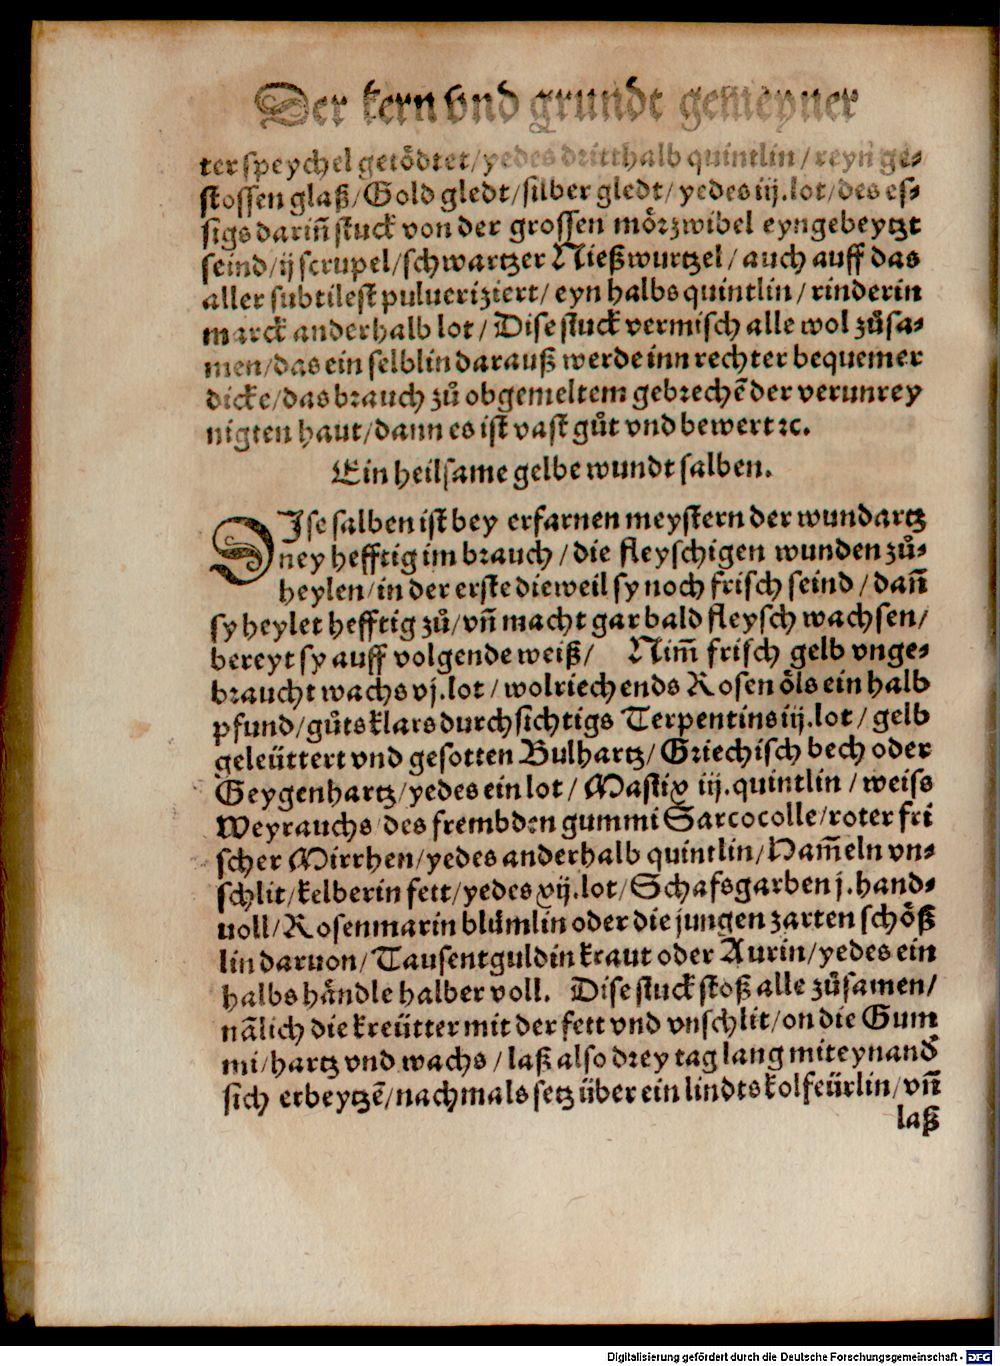 Der kern vnd grundt gemeyner
ter speychel getödtet/yedes dritthalb quintlin/reyn ge⸗
stossen glaß/Gold gledt/silber gledt/yedes iij.lot/des es⸗
sigs dariñ stuck von der grossen mörzwibel eyngebeytzt
seind/ij scrupel/schwartzer Nießwurtzel/auch auff das
aller subtilest pulueriziert/eyn halbs quintlin/rinderin
marck anderhalb lot/Dise stuck vermisch alle wol zůsa⸗
men/das ein selblin darauß werde inn rechter bequemer
dicke/das brauch zů obgemeltem gebrechẽ der verunrey
nigten haut/dann es ist vast gůt vnd bewert ꝛc.
Ein heilsame gelbe wundt salben.
DIse salben ist bey erfarnen meystern der wundartz
ney hefftig im brauch/die fleyschigen wunden zů⸗
heylen/in der erste dieweil sy noch frisch seind/dañ
sy heylet hefftig zů/vñ macht gar bald fleysch wachsen/
bereyt sy auff volgende weiß/ Nim̃ frisch gelb vnge⸗
braucht wachs vj.lot/wolriechends Rosen öls ein halb
pfund/gůts klars durchsichtigs Terpentins iij.lot/gelb
geleüttert vnd gesotten Bulhartz/Griechisch bech oder
Geygenhartz/yedes ein lot/Mastix iij.quintlin/weiss
Weyrauchs/des frembden gummi Sarcocolle/roter fri
scher Mirrhen/yedes anderhalb quintlin/Ham̃eln vn⸗
schlit/kelberin fett/yedes xij.lot/Schafsgarben j.hand⸗
uoll/Rosenmarin blümlin oder die jungen zarten schöß
lin daruon/Tausentguldin kraut oder Aurin/yedes ein
halbs händle halber voll. Dise stuck stoß alle zůsamen/
nãlich die kreütter mit der fett vnd vnschlit/on die Gum
mi/hartz vnd wachs/laß also drey tag lang miteynand̾
sich erbeytzẽ/nachmals setz über ein lindts kolfeürlin/vñ
laß
Digitalisierung gefördert durch die Deutsche Forschungsgemeinschaft - DFG